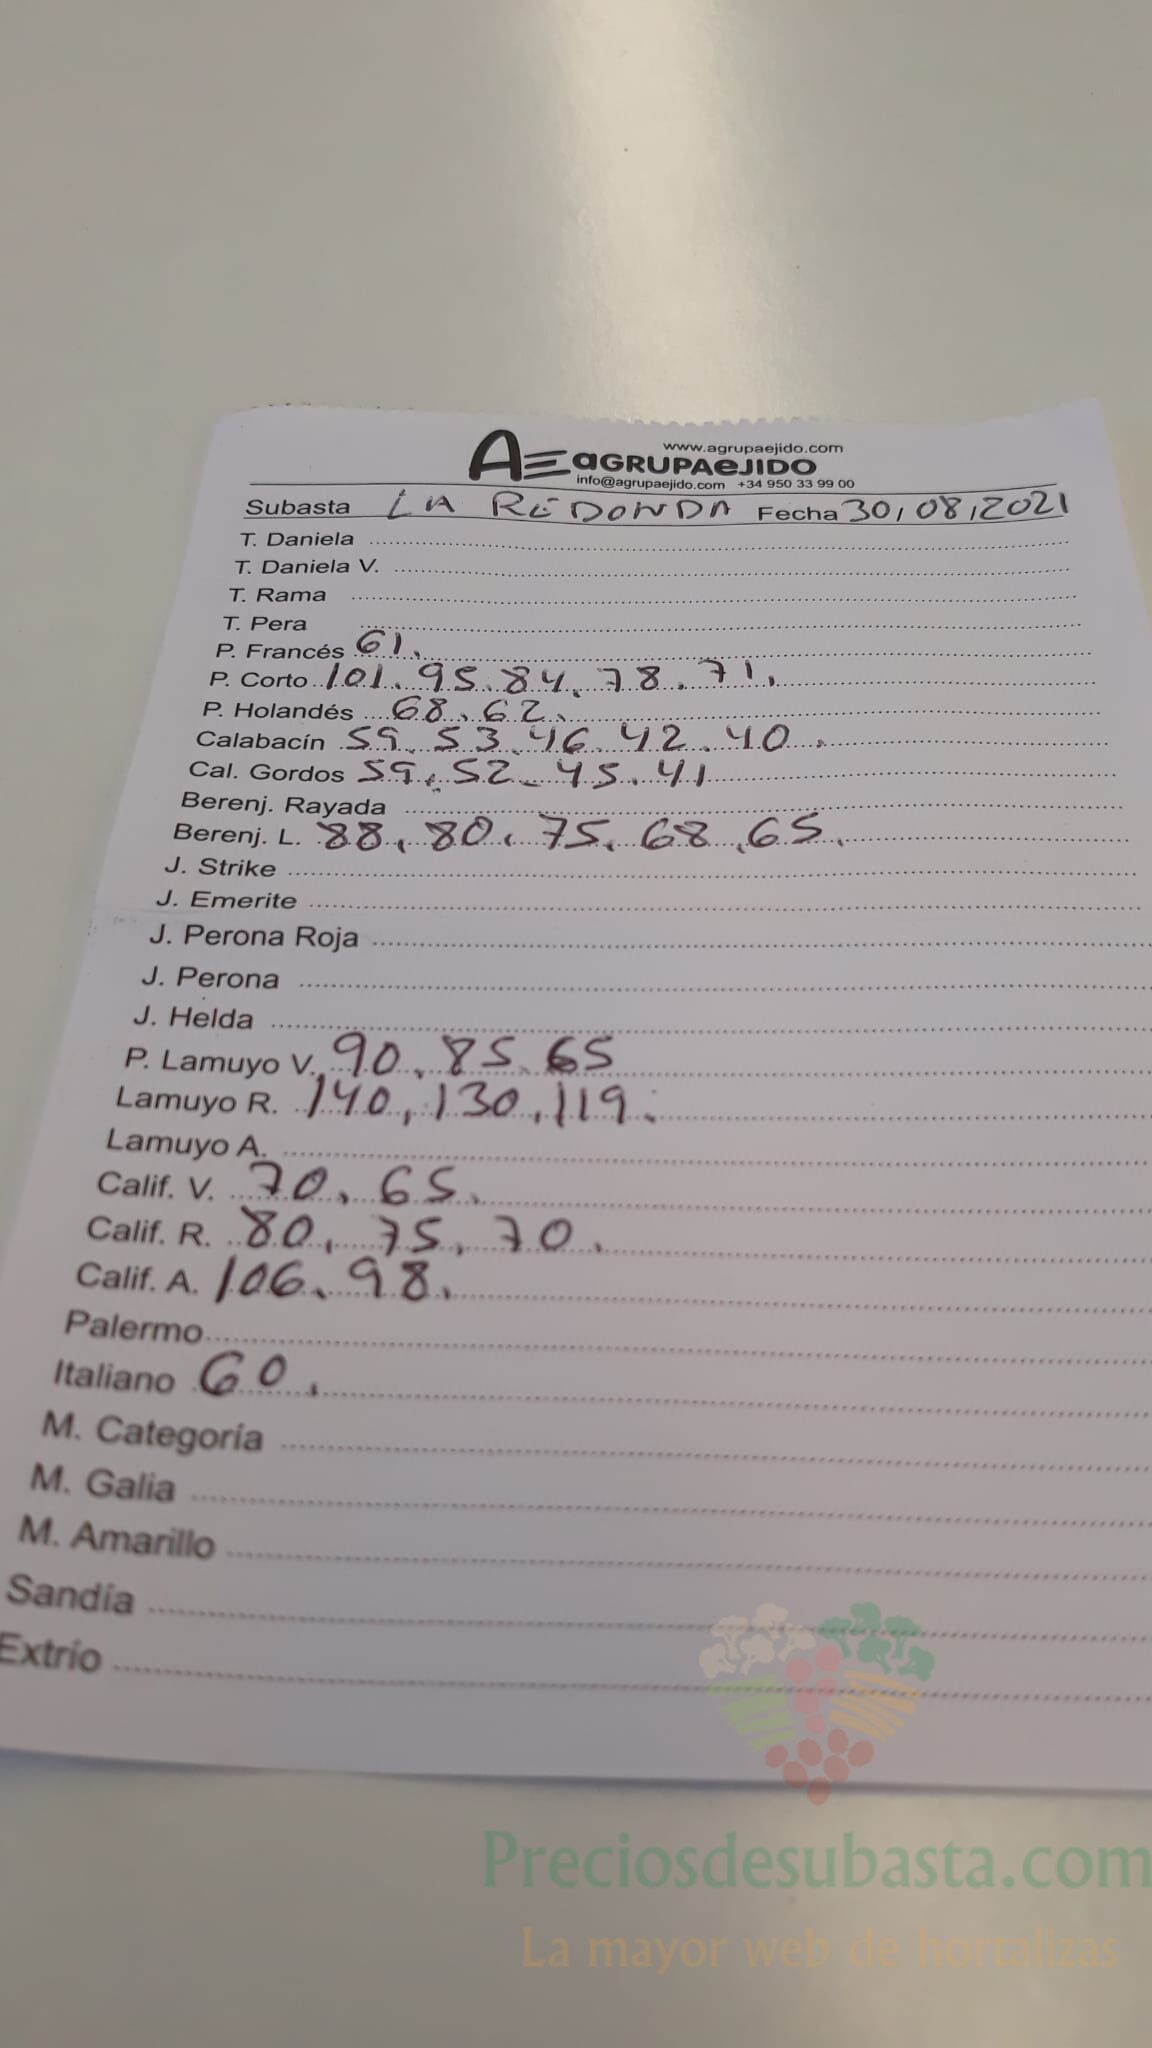 www.agrupaejido.com
AE aGRUPAeJIDO
info@agrupaejido.com +34 950 33 99 00
Subasta LA REDONDA Fecha 30/08/2021
T. Daniela
T. Daniela V.
T. Rama
T. Pera
P. Francés 61.
P. Corto 101. 95. 84. 78. 71.
P. Holandés 68. 62.
Calabacín 59. 53. 46. 42. 40.
Cal. Gordos 59. 52. 45. 41
Berenj. Rayada
Berenj. L. 88. 80. 75. 68. 65.
J. Strike
J. Emerite
J. Perona Roja
J. Perona
J. Helda
P. Lamuyo V. 90. 85. 65
Lamuyo R. 140, 130, 119.
Lamuyo A.
Calif. V. 70. 65.
Calif. R. 80. 75. 70.
Calif. A. 106. 98.
Palermo
Italiano 60.
M. Categoría
M. Galia
M. Amarillo
Sandía
Extrío
Preciosdesubasta.com
La mayor web de hortalizas